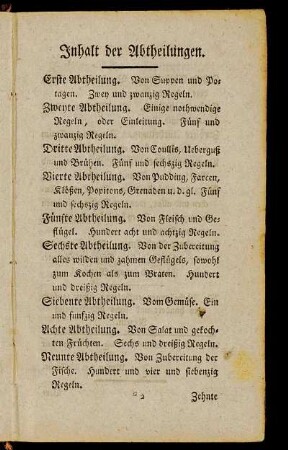 Inhalt der Abtheilungen.
Erste Abtheilung. Von Suppen und Po-
tagen. Zwey und zwanzig Regeln.
Zweyte Abtheilung. Einige nothwendige
Regeln, oder Einleitung. Fünf und
zwanzig Regeln.
Dritte Abtheilung. Von Coullis, Ueberguß
und Brühen. Fünf und sechszig Regeln.
Vierte Abtheilung. Von Pudding, Farcen,
Klößen, Popitons, Grenaden u. d. gl. Fünf
und sechszig Regeln.
Fünfte Abtheilung. Von Fleisch und Ge-
flügel. Hundert acht und achtzig Regeln.
Sechste Abtheilung. Von der Zubereitung
alles wilden und zahmen Geflügels, sowohl
zum Kochen als zum Braten. Hundert
und dreißig Regeln.
Siebente Abtheilung. Vom Gemüse. Ein
und funfzig Regeln.
Achte Abtheilung. Von Salat und gekoch-
ten Früchten. Sechs und dreißig Regeln.
Neunte Abtheilung. Von Zubereitung der
Fische. Hundert und vier und siebenzig
Regeln.
Zehnte